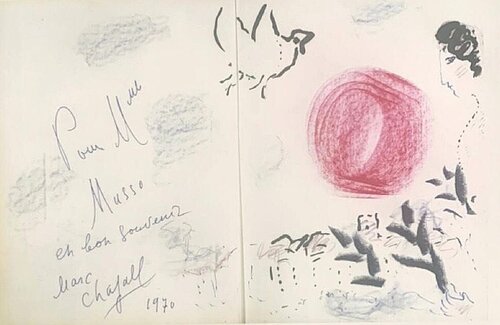 Pour Mme
Musso
en bon souvenir
Marc
Chagall
1970